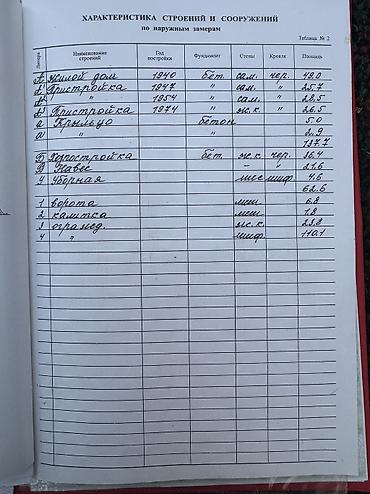 ХАРАКТЕРИСТИКА СТРОЕНИЙ И СООРУЖЕНИЙ
по наружным замерам
Таблица № 2
Литера Наименование строений Год постройки Фундамент Стены Кровля Площадь
А Жилой дом 1940 бет. сам. чер. 49.0
Пристройка 1947 " сам. " 25.7
" 1954 " сам. " 28.5
Пристройка 1974 " ж.к. " 26.5
а Крыльцо бетон 5.0
а " " 2.9
137.7
Б Хозпостройка бет. ж.к. чер. 36.4
В Навес - " 21.6
Уборная шиф 4.6
62.6
1 ворота 6.8
2 калитка 1.8
3 огражд. ж.к. 23.8
4 " шиф. 110.1